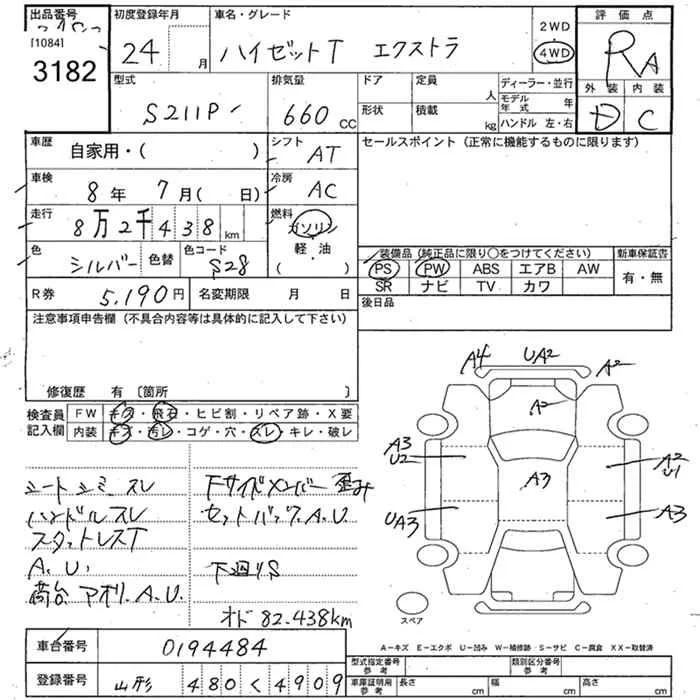 出品番号 初度登録年月 車名・グレード 2WD 評価点
[1084] 24 月 ハイゼットT エクストラ 4WD RA
3182 外装 内装
型式 排気量 ドア 定員 人 ディーラー・並行
モデル年式 年
S211P 660 CC 形状 積載 kg ハンドル 左・右 D C
車歴 自家用・( ) シフト AT セールスポイント (正常に機能するものに限ります)
車検 8年 7月( 日) 冷房 AC
走行 8万2千438km 燃料 ガソリン
軽・油
( )
色 シルバー 色替 色コード S28 装備品 (純正品に限り○をつけてください) 新車保証書
PS PW ABS エアB AW 有・無
SR ナビ TV カワ
R券 5,190円 名変期限 月 日 後日品
注意事項申告欄 (不具合内容等は具体的に記入して下さい)
修復歴 有 〔箇所 〕
検査員記入欄 FW キズ・飛石・ヒビ割・リペア跡・X要
内装 キズ・汚レ・コゲ・穴・スレ・キレ・破レ
A4 UA2 A2
A2
A3
U2
A3
A2
U1
UA3 A3
スペア
シートシミ スレ Fサイドメンバー歪み
ハンドルスレ セットバックA.U.
スタットレスT
A.U. 下廻りS
荷台アオリ.A.U.
オド 82.438km
A−キズ E−エクボ U−凹み W−補修跡 S−サビ C−腐食 XX−取替済
車台番号 0194484
登録番号 山形 480 く 4909
型式指定番号 参考 類別区分番号 参考
車庫証明用 参考 長さ cm 幅 cm 高さ cm